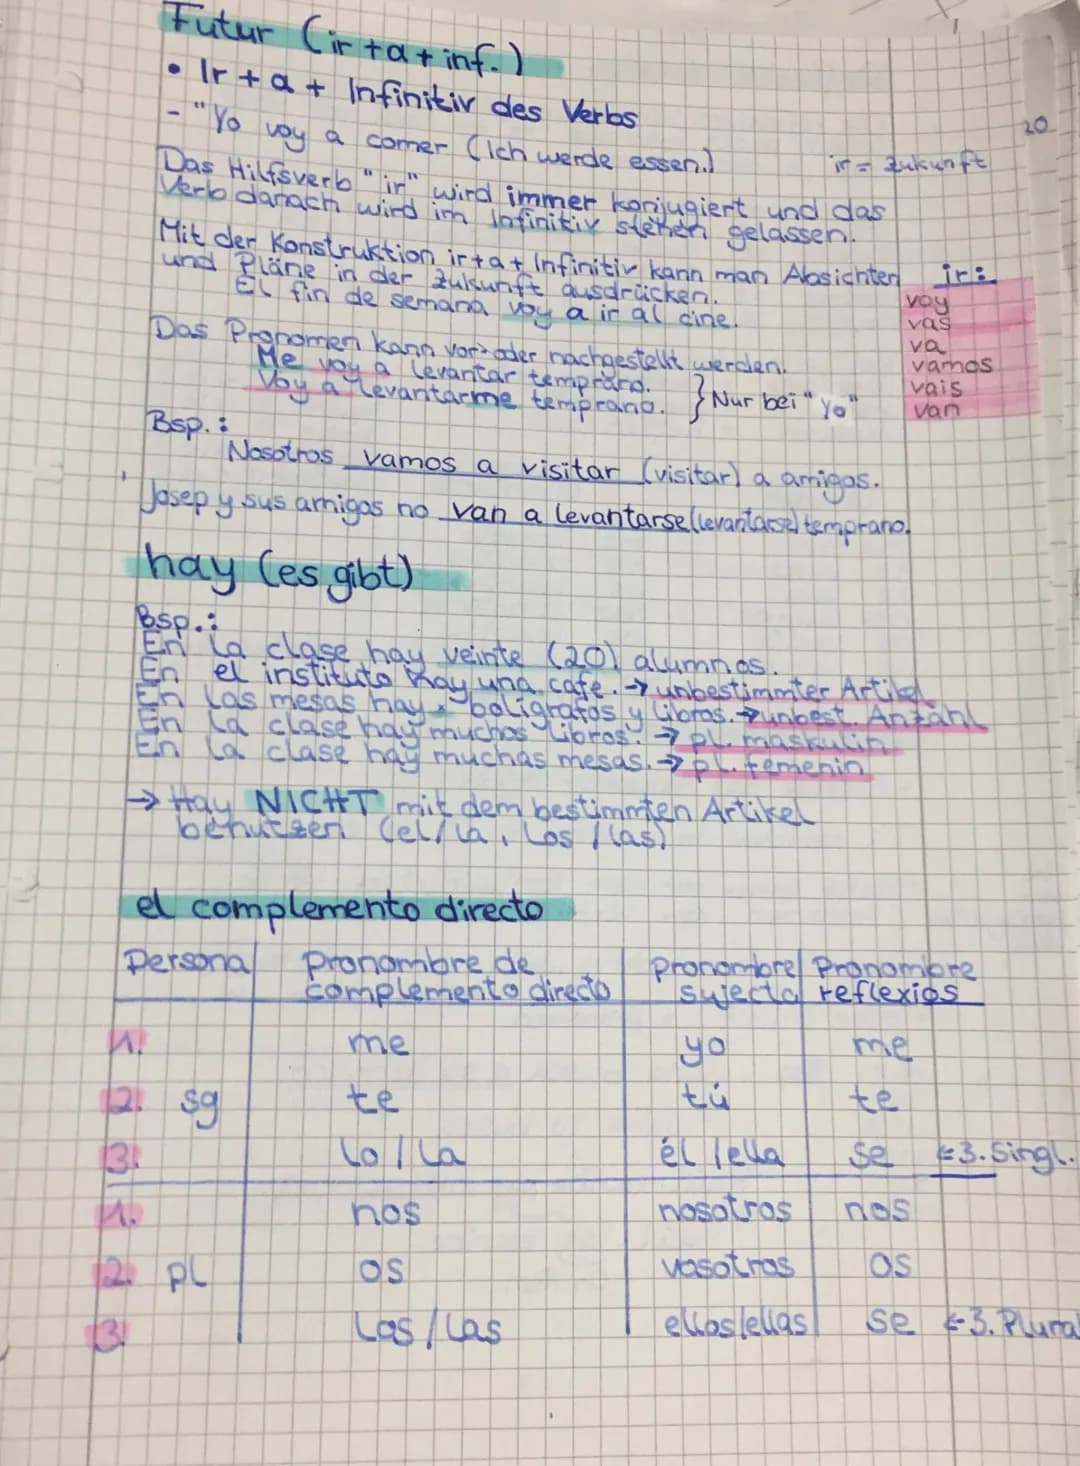 Futur (ir+a+inf.)
• Ir + a + Infinitiv des Verbs
- "Yo voy a comer (Ich werde essen.)
20
ir = Zukunft
Das Hilfsverb "ir" wird immer konjugiert und das
Verb danach wird im Infinitiv stehen gelassen.
Mit der Konstruktion ir+a+Infinitiv kann man Absichten
und Pläne in der Zukunft ausdrücken.
El fin de semana voy a ir al cine.
ir:
voy
vas
va
vamos
vais
van
Das Pronomen kann vor- oder nachgestellt werden.
Me voy a levantar temprano.
Voy a levantarme temprano. } Nur bei "yo"
Bsp.:
Nosotros vamos a visitar (visitar) a amigos.
Josep y sus amigos no van a levantarse (levantarse) temprano.
hay (es gibt)
Bsp.:
En la clase hay veinte (20) alumnos.
En el instituto hay una cafe. → unbestimmter Artikel
En las mesas hay bolígrafos y libros. → unbest. Anzahl
En la clase hay muchos libros. → pl. maskulin
En la clase hay muchas mesas. → pl. femenin
→ Hay NICHT mit dem bestimmten Artikel
benutzen (el/la, los/las)
el complemento directo
Persona Pronombre de complemento directo Pronombre sujecto Pronombre reflexios
1. me yo me
2. sg te tú te
3. lo/la él/ella se ←3. Singl.
1. nos nosotros nos
2. pl os vosotros os
3. Los/Las ellos/ellas se ←3. Plural